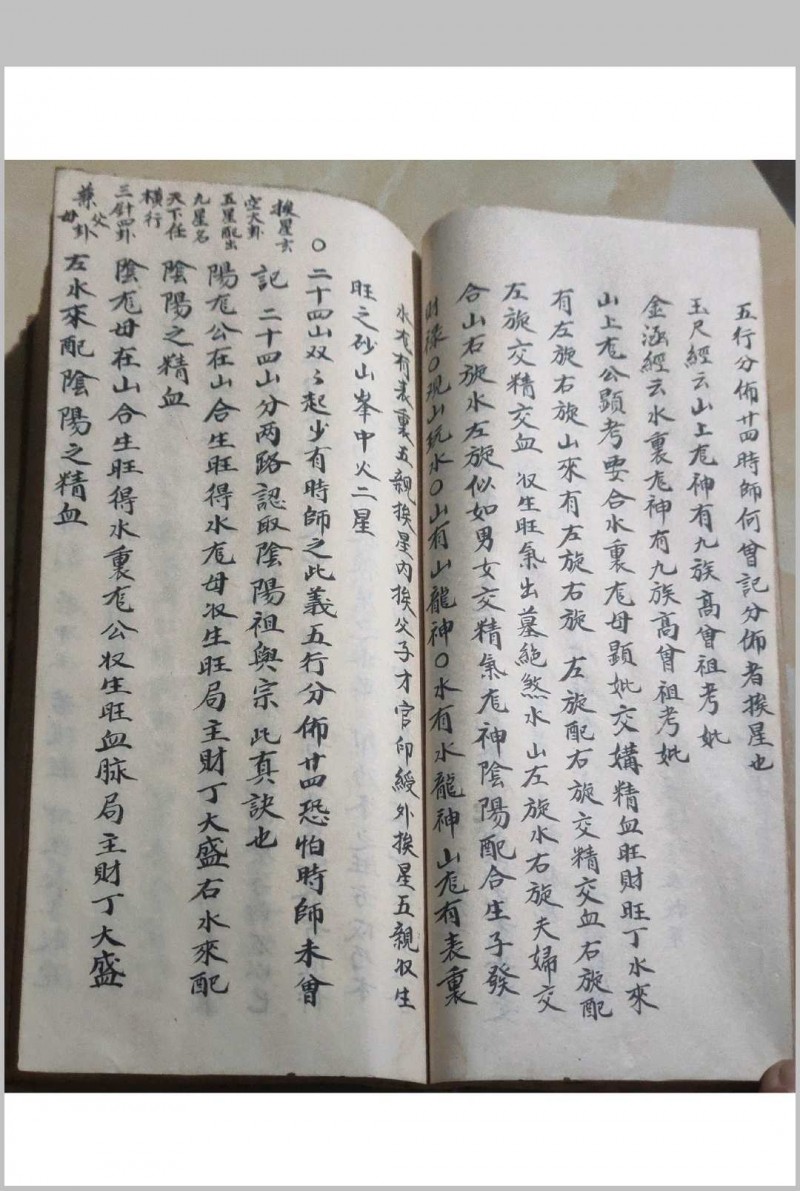 五行分佈廿四時師何曾記分佈者挨星也
玉尺經云山上尨神有九族高曾祖考妣
金涵經云水裏尨神有九族高曾祖考妣
山上尨公顕考要合水裏尨母顕妣交媾精血旺財旺丁水來
有左旋右旋山來有左旋右旋左旋配右旋交精交血右旋配
左旋交精交血収生旺氣出墓絕煞水山左旋水右旋夫婦交
合山右旋水左旋似如男女交精氣尨神陰陽配合生子發
財祿〇观山玩水〇山有山龍神〇水有水龍神山尨有表裏
水尨有表裏五親挨星內挨父子才官印綬外挨星五親収生
旺之砂山峯中火二星
〇二十四山双々起少有時師之此義五行分佈廿四恐怕時師未曾
記 二十四山分两路認取陰陽祖與宗此真訣也
陽尨公在山合生旺得水尨母収生旺局主財丁大盛右水來配
陰陽之精血
陰尨母在山合生旺得水裏尨公収生旺血脉局主財丁大盛
左水來配陰陽之精血
挨星玄
空大卦
五星配出
九星名
天下任
橫行
三針四卦
兼父
母卦